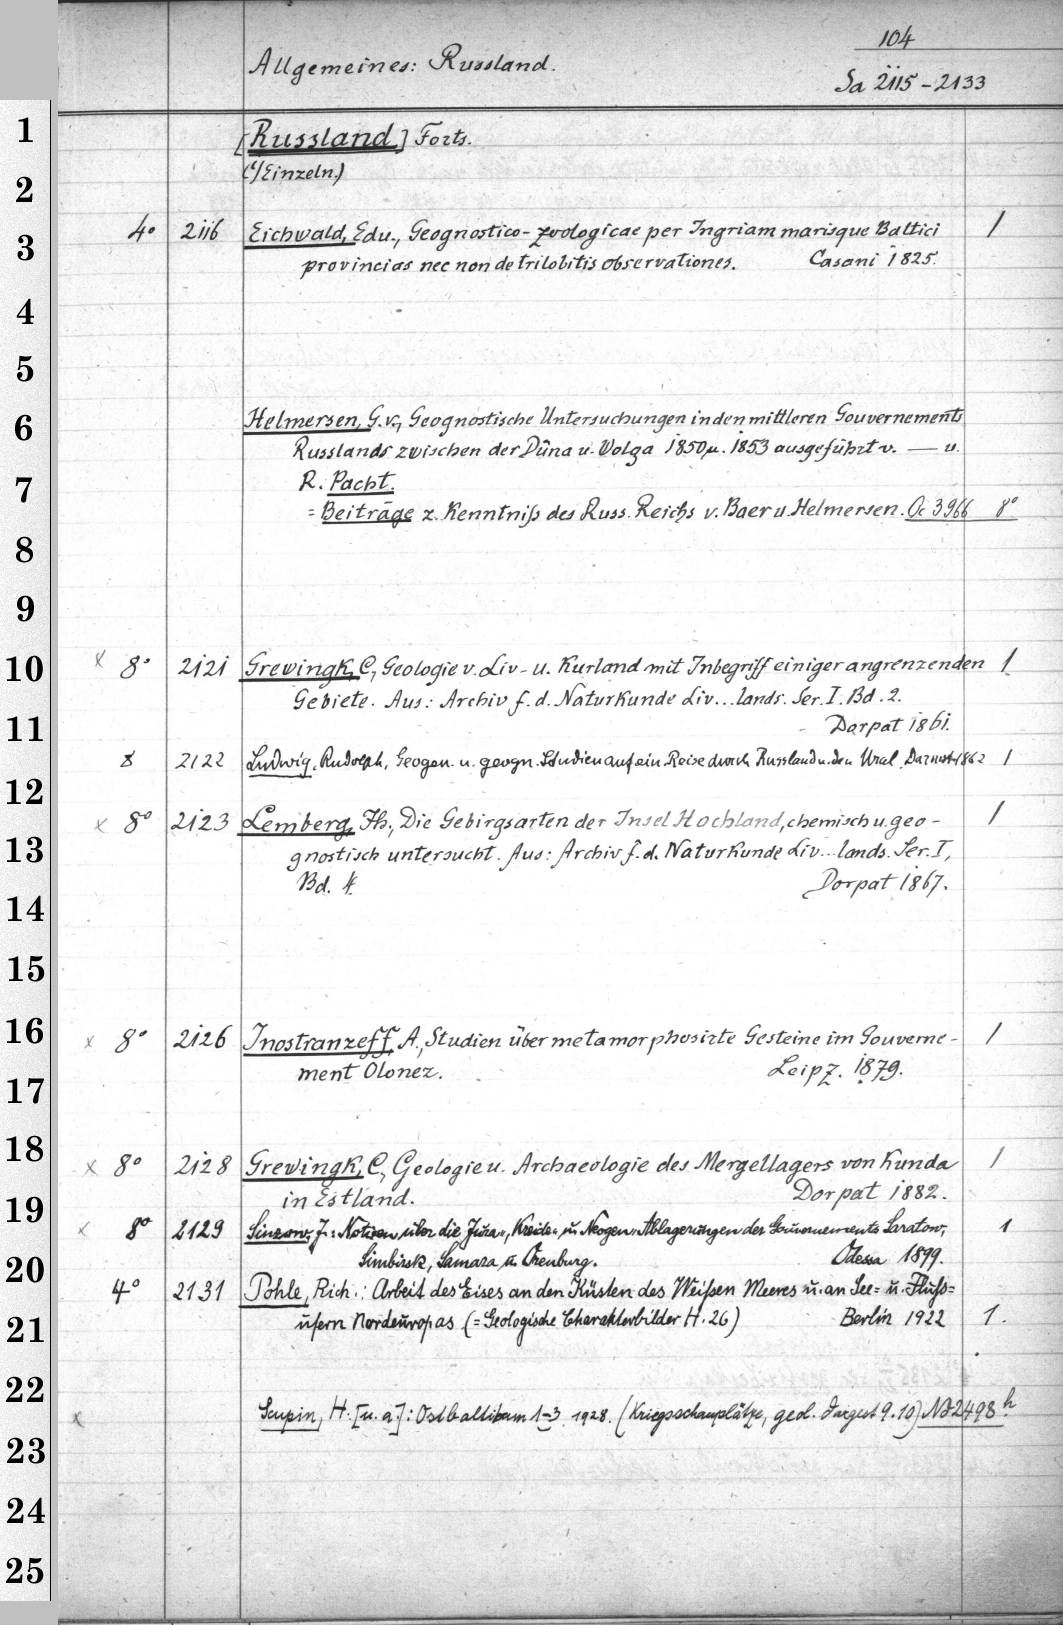 104
Allgemeines: Russland.
Sa 2115-2133
1
[Russland] Forts.
(Einzeln.)
2
3
4° 2116 Eichwald, Edu., Geognostico-zoologicae per Ingriam marisque Baltici 1
provincias nec non de trilobitis observationes. Casani 1825.
4
5
6
Helmersen, G. v., Geognostische Untersuchungen in den mittleren Gouvernements
Russlands zwischen der Düna u. Wolga 1850 u. 1853 ausgeführt v. — u.
7
R. Pacht.
= Beiträge z. Kenntniß des Russ. Reichs v. Baer u. Helmersen. Oc 3966 8°
8
9
10
x 8° 2121 Grewingk, C., Geologie v. Liv- u. Kurland mit Inbegriff einiger angrenzenden 1
Gebiete. Aus: Archiv f. d. Naturkunde Liv...lands. Ser. I. Bd. 2.
11
Dorpat 1861.
8 2122 Ludwig, Rudolph, Geogen. u. geogn. Studien auf ein. Reise durch Russland u. den Ural. Darmst. 1862 1
12
x 8° 2123 Lemberg, Th., Die Gebirgsarten der Insel Hochland, chemisch u. geo- 1
13
gnostisch untersucht. Aus: Archiv f. d. Naturkunde Liv...lands. Ser. I,
Bd. 4. Dorpat 1867.
14
15
16
x 8° 2126 Inostranzeff, A., Studien über metamorphosirte Gesteine im Gouverne- 1
ment Olonez. Leipz. 1879.
17
18
x 8° 2128 Grewingk, C., Geologie u. Archaeologie des Mergellagers von Kunda 1
in Estland. Dorpat 1882.
19
x 8° 2129 Sinzow, J.: Notizen über die Jura-, Kreide- u. Neogen-Ablagerungen des Gouvernements Saratow, 1
Simbirsk, Samara u. Orenburg. Odessa 1899.
20
4° 2131 Pohle, Rich.: Arbeit des Eises an den Küsten des Weißen Meeres u. an See= u. Fluß=
21
ufern Nordeuropas (= Geologische Charakterbilder H. 26) Berlin 1922 1.
22
x Scupin, H. [u. a.]: Ostbaltikum 1-3 1928. (Kriegsschauplätze, geol. dargest 9. 10) Nd 2498 h
23
24
25